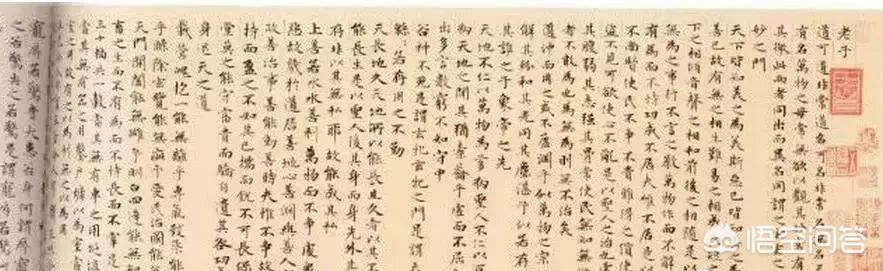 老子
道可道非常道名可名非常名
有名萬物之母常無欲以觀其
其徼此兩者同出而異名同謂之
妙之門
天下皆知美之為美斯惡已皆知
善已故有無之相生難易之相
下之相傾音聲之相和前後之相隨是以
無為之事行不言之教萬物作而不辭
有為而不恃功成不居夫惟不居是
不尚賢使民不爭不貴難得之貨使
盜不見可欲使心不亂是以聖人之治也
其腹弱其志強其骨常使民無知無
者不敢為也為無為則無不治矣
道沖而用之或不盈淵乎似萬物之宗
解其紛和其光同其塵湛兮似若存
其誰之子象帝之先
天地不仁以萬物為芻狗聖人不仁以百
為天地之間其猶橐籥乎虛而不屈
出多言數窮不如守中
谷神不死是謂玄牝玄牝之門是謂天
綿綿若存用之不勤
天長地久天地所以能長且久者以其不
能長生是以聖人後其身而身先外其
存非以其無私耶故能成其私
上善若水水善利萬物而不爭處
惡故幾於道居善地心善淵與善人
政善治事善能動善時夫惟不爭故
持而盈之不如其已揣而銳之不可長保
堂莫之能守富貴而驕自遺其咎功
身退天之道
載營魄抱一能無離乎專氣致柔能
乎滌除玄覽能無疵乎愛民治國能
天門開闔能無雌乎明白四達能無
畜之生而不有為而不恃長而不宰是
三十輻共一轂當其無有車之用埏
當其無有器之用鑿戶牖以為室當
室之用故有之以為利無之以為用
寵辱若驚貴大患若身何謂寵
之若驚失之若驚是謂寵辱若驚
悟空问答